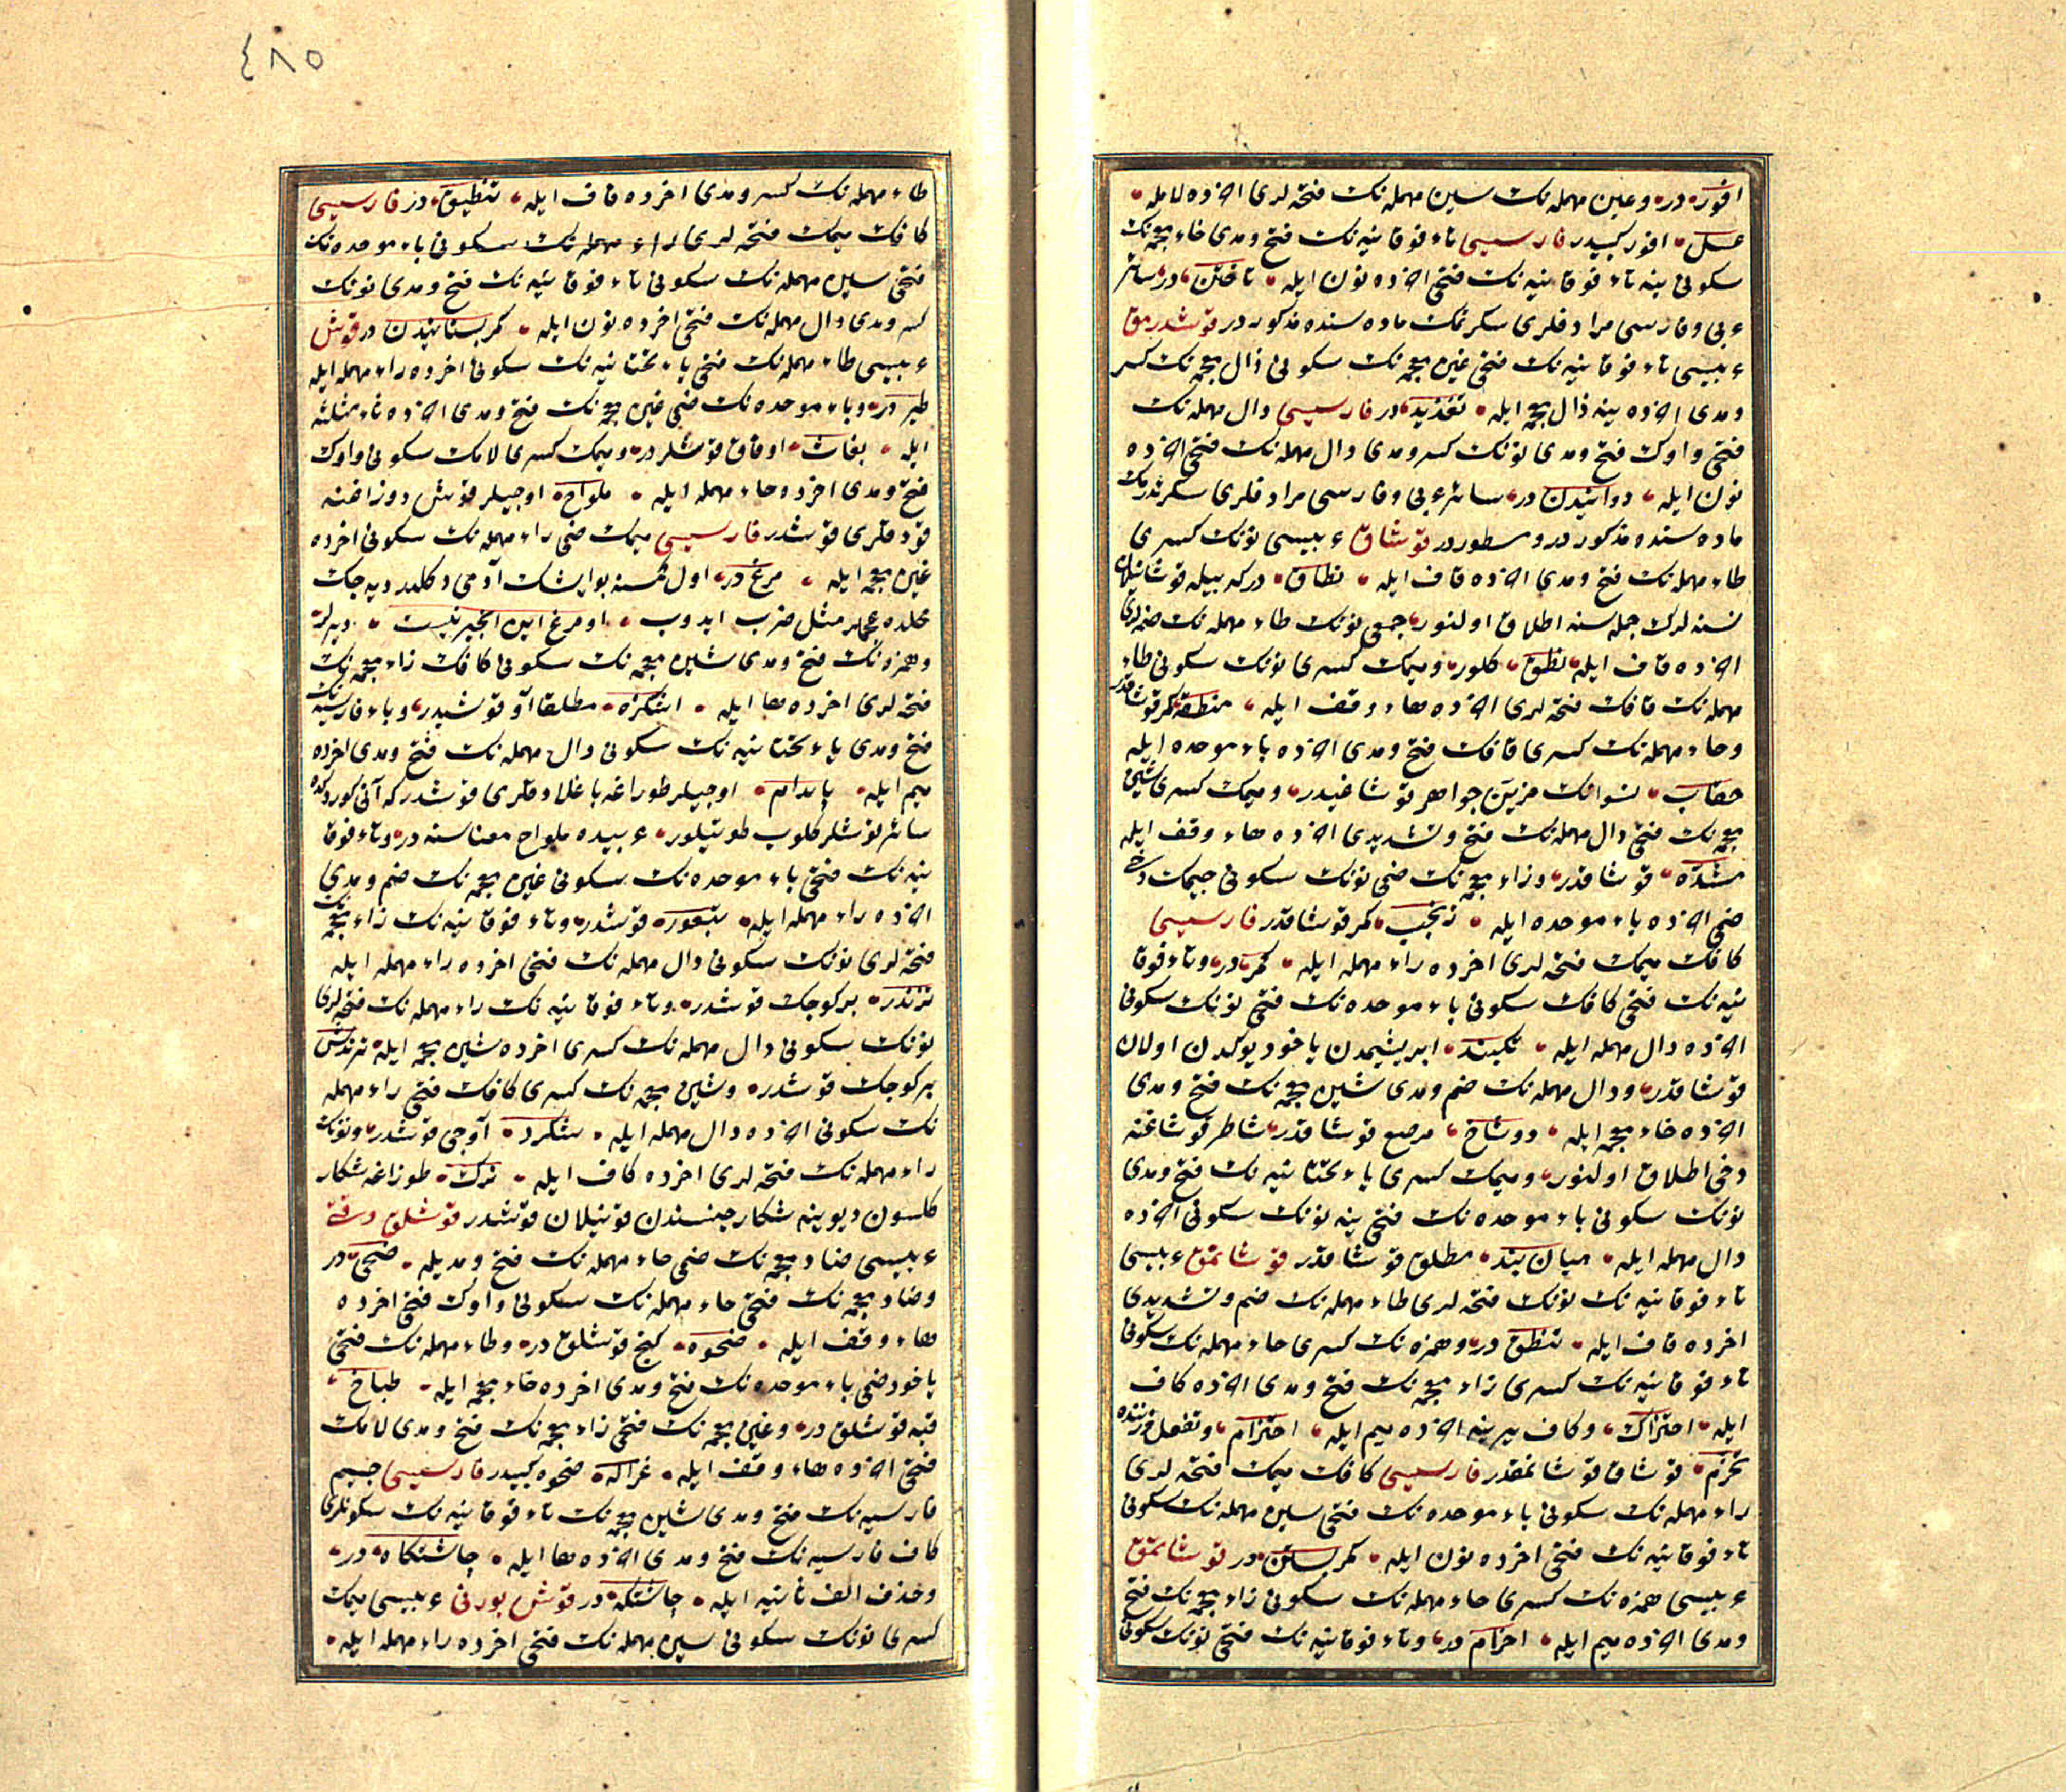 افور در وعین مهمله نك سین مهمله نك فتحه لری اخرده لامله
عسل افور كبیدر فارسیسی تاء فوقانیه نك فتح ومدی خاء معجمه نك
سكونی ینه تاء فوقانیه نك فتحی اخرده نون ایله تاختن در سائر
عربی وفارسی مرادفلری سكرتمك ماده سنده مذكور در قوشدرمق
عربیسی تاء فوقانیه نك فتحی غین معجمه نك سكونی ذال معجمه نك كسر
ومدی اخرده ینه ذال معجمه ایله تغذیذ در فارسیسی دال مهمله نك
فتحی واوك فتح ومدی نونك كسر ومدی دال مهمله نك فتحی اخرده
نون ایله دوانیدن در سائر عربی وفارسی مرادفلری سكرتدرمك
ماده سنده مذكور در ومسطور در قوشاق عربیسی نونك كسری
طاء مهمله نك فتح ومدی اخرده قاف ایله نطاق در كه بیله قوشانیلان
نسنه لرك جمله سنه اطلاق اولنور جمعی نونك طاء مهمله نك ضمه لری
اخرده قاف ایله نطق كلور ومیمك كسری نونك سكونی طاء
مهمله نك قافك فتحه لری اخرده هاء وقف ایله منطقه كمر قوشاقدر
وحاء مهمله نك كسری قافك فتح ومدی اخرده باء موحده ایله
حقاب نسوانك مزین جواهر قوشاغیدر ومیمك كسری شین
معجمه نك فتحی دال مهمله نك فتح وتشدیدی اخرده هاء وقف ایله
مشده قوشاقدر وزاء معجمه نك ضمی نونك سكونی جیمك دخی
ضمی اخرده باء موحده ایله زنجب كمر قوشاقدر فارسیسی
كافك میمك فتحه لری اخرده راء مهمله ایله كمر در وتاء فوقا
نیه نك فتحی كافك سكونی باء موحده نك فتحی نونك سكونی
اخرده دال مهمله ایله تكبند ابریشیمدن یاخود یوكدن اولان
قوشاقدر ودال مهمله نك ضم ومدی شین معجمه نك فتح ومدی
اخرده خاء معجمه ایله دوشاخ مرصع قوشاقدر شاطر قوشاغنه
دخی اطلاق اولنور ومیمك كسری یاء تحتانیه نك فتح ومدی
نونك سكونی باء موحده نك فتحی ینه نونك سكونی اخرده
دال مهمله ایله میان بند مطلق قوشاقدر قوشانمق عربیسی
تاء فوقانیه نك نونك فتحه لری طاء مهمله نك ضم وتشدیدی
اخرده قاف ایله تنطق در وهمزه نك كسری حاء مهمله نك سكونی
تاء فوقانیه نك كسری زاء معجمه نك فتح ومدی اخرده كاف
ایله احتزاك وكاف یرینه اخرده میم ایله احتزام وتفعل وزننده
تحزم قوشاق قوشانمقدر فارسیسی كافك میمك فتحه لری
راء مهمله نك سكونی باء موحده نك فتحی سین مهمله نك سكونی
تاء فوقانیه نك فتحی اخرده نون ایله كمر بستن در قوشاتمق
عربیسی همزه نك كسری حاء مهمله نك سكونی زاء معجمه نك فتح
ومدی اخرده میم ایله احزام در وتاء فوقانیه نك فتحی نونك سكونی
٤٨٥
طاء مهمله نك كسر ومدی اخرده قاف ایله تنطیق در فارسیسی
كافك میمك فتحه لری راء مهمله نك سكونی باء موحده نك
فتحی سین مهمله نك سكونی تاء فوقانیه نك فتح ومدی نونك
كسر ومدی دال مهمله نك فتحی اخرده نون ایله كمر بستانیدن در قوش
عربیسی طاء مهمله نك فتحی یاء تحتانیه نك سكونی اخرده راء مهمله ایله
طیر در وباء موحده نك ضمی غین معجمه نك فتح ومدی اخرده ثاء مثلثه
ایله بغاث اوفاق قوشلر در ومیمك كسری لامك سكونی واوك
فتح ومدی اخرده حاء مهمله ایله ملواح اوجیلر قوش دوزاغنه
قودقلری قوشدر فارسیسی میمك ضمی راء مهمله نك سكونی اخرده
غین معجمه ایله مرغ در اول كمسنه بو ایشك آدمی دكلدر دیه جك
محلده عجملر مثل ضرب ایدوب او مرغ این انجیر نیست دیرلر
وهمزه نك فتح ومدی شین معجمه نك سكونی كافك زاء معجمه نك
فتحه لری اخرده ها ایله اشكزه مطلقا آو قوشیدر وباء فارسیه نك
فتح ومدی یاء تحتانیه نك سكونی دال مهمله نك فتح ومدی اخرده
میم ایله پایدام اوجیلر طوزاغه باغلادقلری قوشدر كه آنی كوردكده
سائر قوشلر كلوب طوتیلور عربیده ملواح معناسنه در وتاء فوقا
نیه نك فتحی باء موحده نك سكونی غین معجمه نك ضم ومدی
اخرده راء مهمله ایله تبغور قوشدر وتاء فوقانیه نك زاء معجمه نك
فتحه لری نونك سكونی دال مهمله نك فتحی اخرده راء مهمله ایله
تزندر بر كوجك قوشدر وتاء فوقانیه نك راء مهمله نك فتحه لری
نونك سكونی دال مهمله نك كسری اخرده شین معجمه ایله ترندش
بر كوجك قوشدر وشین معجمه نك كسری كافك فتحی راء مهمله
نك سكونی اخرده دال مهمله ایله شكرد آوجی قوشدر ونونك
راء مهمله نك فتحه لری اخرده كاف ایله نرك طوزاغه شكار
كلسون دیو ینه شكار جنسندن قونیلان قوشدر قوشلق وقتی
عربیسی ضاد معجمه نك ضمی حاء مهمله نك فتح ومدیله ضحی در
وضاد معجمه نك فتحی حاء مهمله نك سكونی واوك فتحی اخرده
هاء وقف ایله ضحوه كنج قوشلق در وطاء مهمله نك فتحی
یاخود ضمی باء موحده نك فتح ومدی اخرده خاء معجمه ایله طباخ
قبه قوشلق در وغین معجمه نك فتحی زاء معجمه نك فتح ومدی لامك
فتحی اخرده هاء وقف ایله غزاله ضحوه كبیدر فارسیسی جیم
فارسیه نك فتح ومدی شین معجمه نك تاء فوقانیه نك سكونلری
كاف فارسیه نك فتح ومدی اخرده ها ایله چاشتكاه در
وحذف الف ثانیه ایله چاشتكه در قوش بورنی عربیسی میمك
كسری نونك سكونی سین مهمله نك فتحی اخرده راء مهمله ایله